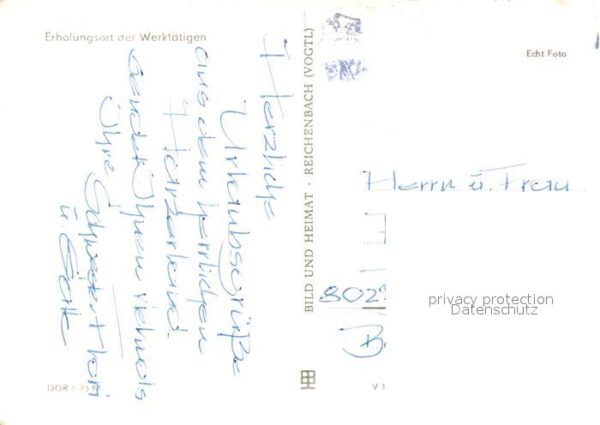 Erholungsort der Werktätigen
Herzliche
Urlaubsgrüße
aus dem herrlichen
Harzerland.
sendet Ihnen vielmals
Ihre Schwester
u. 
DDR 0,25 M
BILD UND HEIMAT · REICHENBACH (VOGTL)
V 1
Echt Foto
Herrn u. Frau
802
privacy protection
Datenschutz